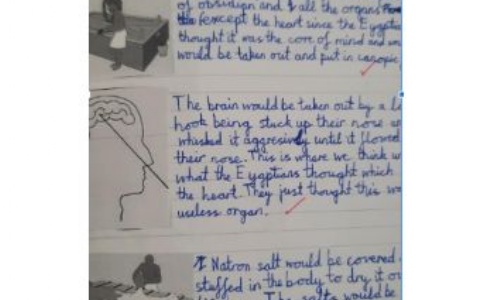 of obsidian and all the organs
except the heart since the Eygptians
thought it was the core of mind and
would be taken out and put in canopic
The brain would be taken out by a
hook being stuck up their nose
whisked it aggresively until it flowed
their nose. This is where we think
what the Eygptians thought which
the heart. They just thought this
useless organ.
Natron salt would be covered
stuffed in the body to dry it
The salts would be